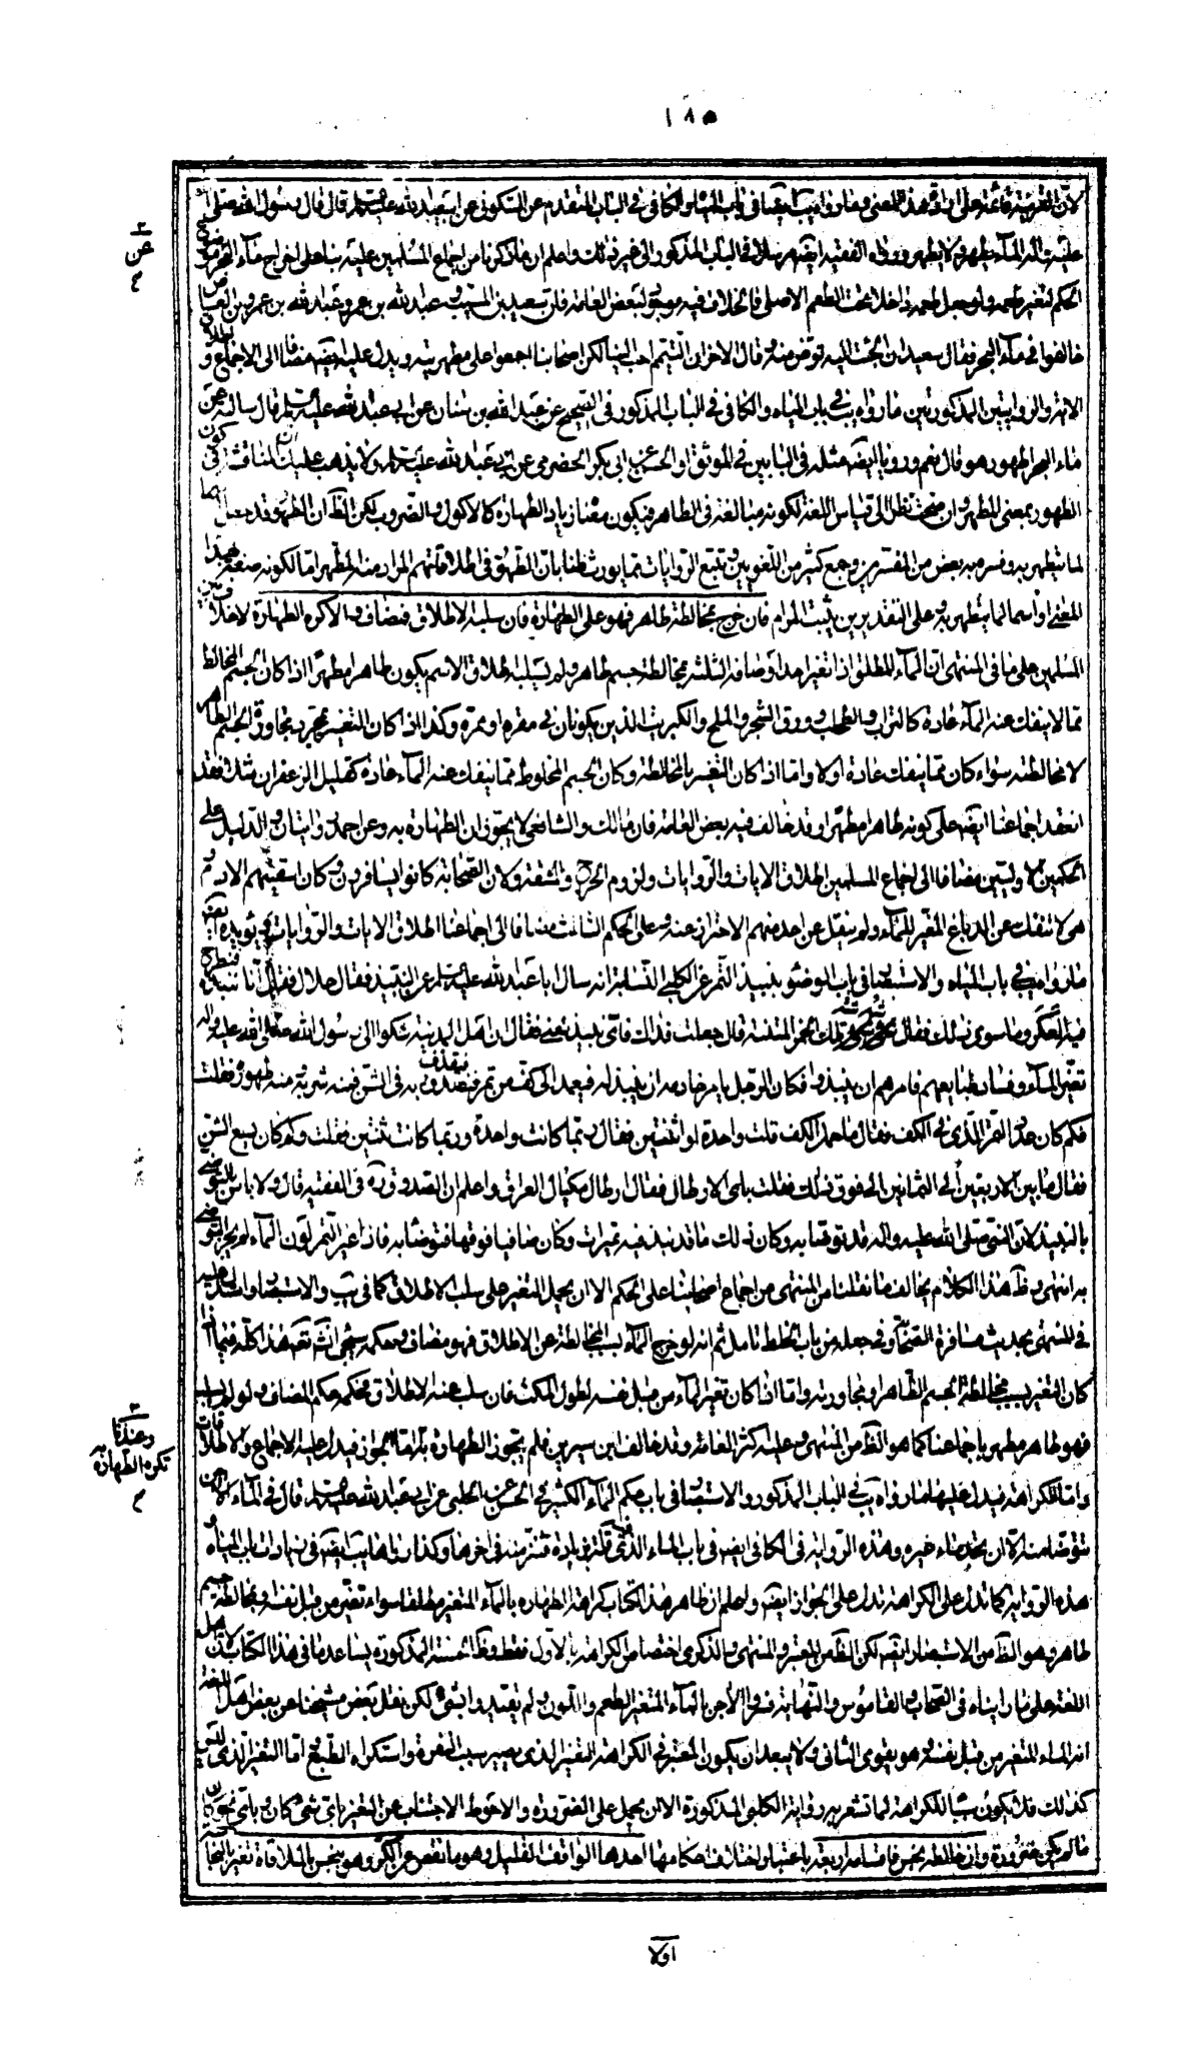 ١٨٥
لان القرينة قائمة على ارادة هذا المعنى وما رواه يب ايضا في باب المياه والكافي في الباب المتقدم عن السكوني عن ابيعبد الله عليه السلام قال قال رسول الله صلى الله
عليه واله الماء يطهر ولا يطهر ورواه الفقيه ايضا مرسلا في الباب المذكور الى غير ذلك واعلم ان ما ذكرنا من اجماع المسلمين عليه بناء على اخراج ماء البحر من
الحكم لتغير طعمه ولو جعل طعمه داخلا تحت الطعم الاصلي فالخلاف فيه موجود لبعض العامة فان سعيد بن المسيب وعبد الله بن عمر وعبد الله بن عمرو بن العاص
خالفوا في ماء البحر فقال سعيد ان الجئت اليه توض منه وقال الاخران التيمم احب الينا لكن اصحابنا اجمعوا على مطهريته ويدل عليه ايضا مضافا الى الاجماع واطلاق
الاية والروايتين المذكورتين ما رواه يب في باب المياه والكافي في الباب المذكور في الصحيح عن عبد الله بن سنان عن ابي عبد الله عليه السلام قال سالته عن
ماء البحر اطهور هو قال نعم ورويا ايضا مثله في البابين في الموثق او الحسن عن ابي بكر الحضرمي عن ابي عبد الله عليه السلام ولا يذهب عليك ان المناقشة في كون
الطهور بمعنى المطهر وان صحت نظرا الى قياس اللغة لكونه مبالغة في الطاهر فيكون معناه زيادة الطهارة كالاكول والضروب لكن الظ ان الطهور قد جعل اسما
لما يتطهر به وفسره به بعض من المفسرين وجمع كثير من اللغويين وتتبع الروايات مما يورث ظنا بان الطهور في اطلاقاتهم المراد منه المطهر اما لكونه صفة بهذا
المعنى او اسما لما يتطهر به وعلى التقديرين يثبت المرام فان خرج بمخالطة طاهر فهو على الطهارة فان سلبه الاطلاق فمضاف والا كره الطهارة لا خلاف بين
المسلمين على ما في المنتهى ان الماء المطلق اذا تغير احد اوصافه الثلثة بمخالطة جسم طاهر ولم يسلبه اطلاق الاسم يكون طاهرا مطهرا اذا كان الجسم المخالط
مما لا ينفك عنه الماء عادة كالتراب والطحلب وورق الشجر والملح والكبريت الذين يكونان في مقره او ممره وكذا اذا كان التغير بمجرد مجاورة الجسم الطاهر
لا مخالطته سواء كان مما ينفك عادة او لا واما اذا كان التغير بالمخالطة وكان الجسم المخلوط مما ينفك عنه الماء عادة كقليل الزعفران مثلا فقد
انعقد اجماعنا ايضا على كونه طاهرا مطهرا وقد خالف فيه بعض العامة فان مالك والشافعي لا يجوزان الطهارة به وعن احمد روايتان والدليل على
الحكمين الاوليين مضافا الى اجماع المسلمين اطلاق الايات والروايات ولزوم الحرج والمشقة ولان الصحابة كانوا يسافرون وكان اسقيتهم الادم و
هي لا تنفك عن الدباغ المغير للماء ولم ينقل عن احد منهم الاحتراز عنه وعلى الحكم الثالث مضافا الى اجماعنا اطلاق الايات والروايات ويؤيده ايضا
ما رواه يب في باب المياه والاستبصار في باب الوضوء بنبيذ التمر عن الكلبي النسابة انه سال ابا عبد الله عليه السلام عن النبيذ فقال حلال فقال انا ننبذه فنطرح
فيه العكر وما سوى ذلك فقال شه شه تلك الخمرة المنتنة قال جعلت فداك فاي نبيذ تعني فقال ان اهل المدينة شكوا الى رسول الله صلى الله عليه واله
تغير الماء وفساد طبايعهم فامرهم ان ينبذوا فكان الرجل يامر خادمه ان ينبذ له فيعمد الى كف من تمر فيقذف به في الشن فمنه شربه ومنه طهوره فقلت
فكم كان عدد التمر الذي في الكف فقال ما حمل الكف قلت واحدة او اثنتين فقال ربما كانت واحدة وربما كانت ثنتين فقلت وكم كان يسع الشن
فقال ما بين الاربعين الى الثمانين الى فوق ذلك فقلت باي الارطال فقال ارطال مكيال العراق واعلم ان الصدوق ره في الفقيه قال ولا باس بالتوضي
بالنبيذ لان النبي صلى الله عليه واله قد توضا به وكان ذلك ماء قد نبذ فيه تميرات وكان صافيا فوقها فتوضا به فاذا غير التمر لون الماء لم يجز التوضي
به انتهى وظ هذا الكلام يخالف ما نقلنا من المنتهى من اجماع اصحابنا على الحكم الا ان يحمل التغير على سلب الاطلاق كما في يب والاستبصار واستدل عليه
في المنتهى بحديث مسافرة الصحابة وفي جعله من باب الخلط تامل ثم انه لو خرج الماء بسبب المخالطة عن الاطلاق فهو مضاف وحكمه سيجئ انشاء الله تع هذا كله فيما اذا
كان التغير بسبب مخالطة الجسم الطاهر او مجاورته واما اذا كان تغير الماء من قبل نفسه لطول المكث فان سلب عنه الاطلاق فحكمه حكم المضاف ولو لم يسلب
فهو طاهر مطهر باجماعنا كما هو الظ من المنتهى وعليه اكثر العامة وقد خالف ابن سيرين فلم يجوز الطهارة به اما الجواز فيدل عليه الاجماع والاطلاقات
واما الكراهة فيدل عليها ما رواه يب في الباب المذكور والاستبصار في باب حكم الماء الكثير في الحسن عن الحلبي عن ابي عبد الله عليه السلام قال في الماء الاجن
تتوضا منه الا ان تجد ماء غيره وهذه الرواية في الكافي ايضا في باب الماء الذي فيه قلة بزيادة فتنزه منه في اخرها وكذا رواها يب ايضا في زيادات باب المياه و
هذه الرواية كما تدل على الكراهة تدل على الجواز ايضا واعلم ان ظاهر هذا الكتاب كراهة الطهارة بالماء المتغير مطلقا سواء تغير من قبل نفسه او بمخالطة جسم
طاهر وهو الظ من الاستبصار ايضا لكن الظ من المعتبر والمنتهى والذكرى اختصاص الكراهة بالاول فقط وظ الحسنة المذكورة يساعد ما في هذا الكتاب لان اهل
اللغة على ما رايناه في الصحاح والقاموس والنهاية فسروا الاجن بالماء المتغير الطعم واللون ولم يقيدوا بشئ لكن نقل بعض مشيختنا عن بعض اهل اللغة
انه الماء المتغير من قبل نفسه وهو يقوي الثاني ولا يبعد ان يكون المعتبر في الكراهة التغير الذي يصير سبب النفرة واستكراه الطبع اما التغير الذي ليس
كذلك فلا يكون سببا للكراهة لما تشعر به رواية الكلبي المذكورة الا ان يحمل على الضرورة والاحوط الاجتناب عن التغير باي شئ كان وباي نحو كان
ما لم يكن ضرورة وان خالطه نجس فاقسامه اربعة باعتبار اختلاف احكامها احدها الواقف القليل وهو ما نقص عن الكر وهو ينجس بالملاقاة تغير بالنجاسة
عن
وعندنا
تكره الطهارة به
اولا